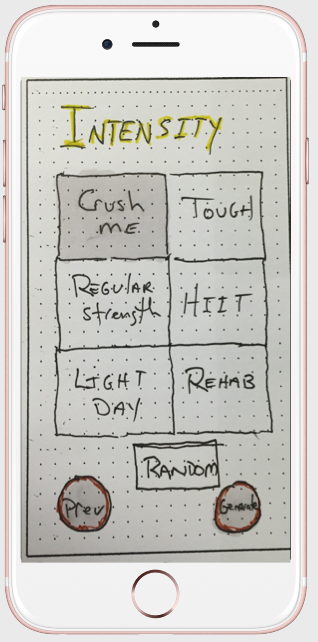 INTENSITY
Crush
me
TOUGH
REGULAR
strength
HIIT
LIGHT
DAY
REHAB
RANDOM
Prev
Generate